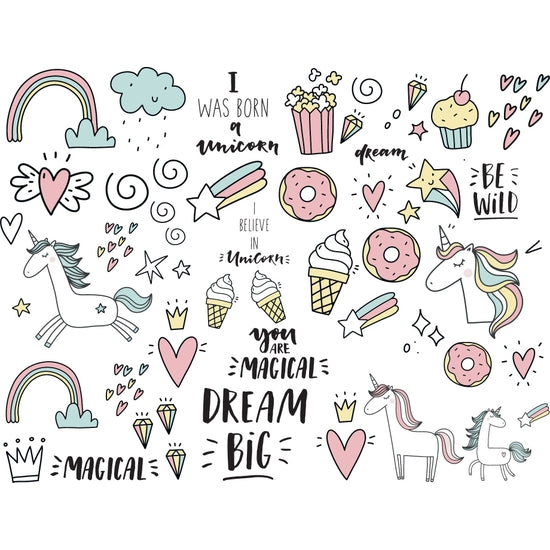 I
WAS BORN
a
unicorn
dream
BE
WILD
I
BELIEVE
IN
Unicorn
you
ARE
MAGICAL
DREAM
BiG
MAGICAL